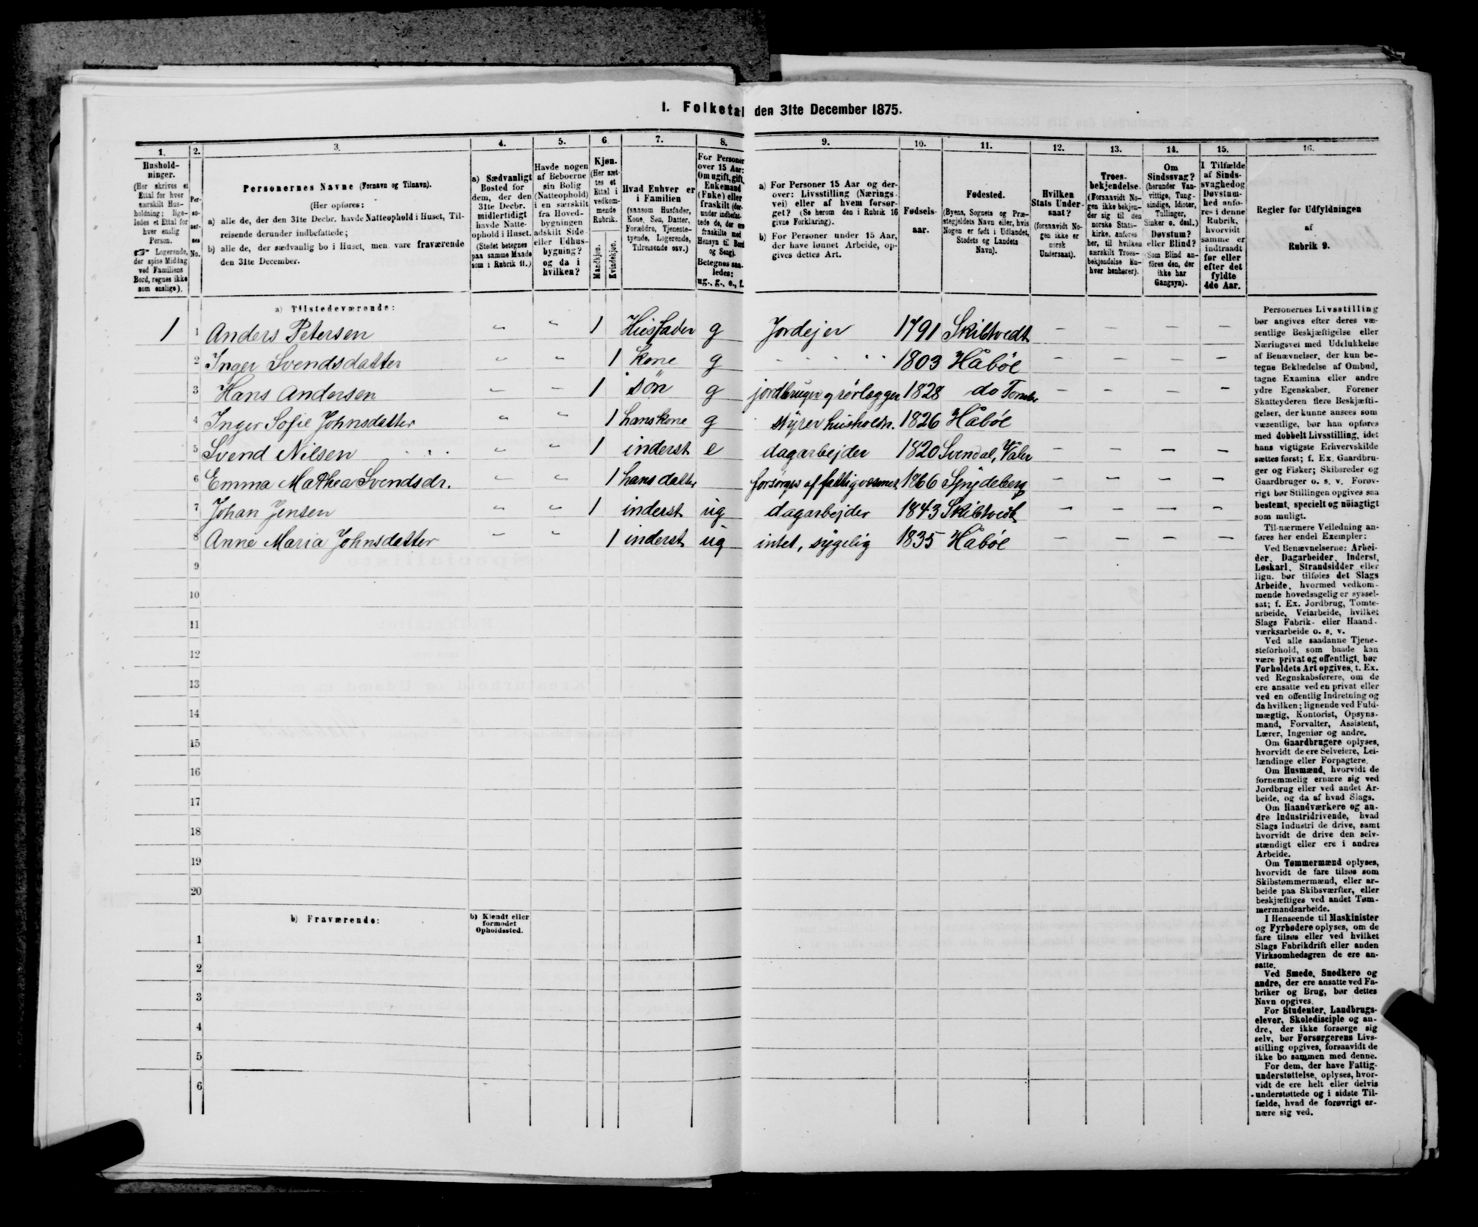 I. Folketal den 31te December 1875.
1. 2. 3. 4. 5. 6. 7. 8. 9. 10. 11. 12. 13. 14. 15. 16.
Husholdninger.
(Her skrives et Ettal for hver særskilt Husholdning; ligeledes et Ettal for hver enslig Person.
Logerende, der spise Middag ved Familiens Bord, regnes ikke som enslige).
Personernes No.
Personernes Navne (Fornavn og Tilnavn).
(Her opføres:
a) alle de, der den 31te Decbr. havde Natteophold i Huset, Tilreisende derunder indbefattede;
b) alle de, der sædvanlig bo i Huset, men vare fraværende den 31te December.
a) Sædvanligt Bosted for dem, der den 31te Decbr. midlertidigt havde Natteophold i Huset.
(Stedet betegnes paa samme Maade som i Rubrik 11.)
Havde nogen af Beboerne sin Bolig (Natteophold) i en særskilt fra Hovedbygningen adskilt Side- eller Udhusbygning? og da i hvilken?
Kjøn.
(Her sættes et Ettal i vedkommende Rubrik.
Mandkjøn.
Kvindekjøn.
Hvad Enhver er i Familien
(saasom Husfader, Kone, Søn, Datter, Forældre, Tjenestetyende, Logerende, Tilreisende osv.)
For Personer over 15 Aar: Om ugift, gift, Enkemand (Enke) eller fraskilt
Betegnes saaledes: ug., g., e., f.
a) For Personer 15 Aar og derover: Livsstilling (Næringsvei) eller af hvem forsørget? (Se herom den i Rubrik 16 givne Forklaring).
b) For Personer under 15 Aar, der have lønnet Arbeide, opgives dettes Art.
Fødselsaar.
Fødested.
(Byens, Sognets og Præstegjeldets Navn eller, hvis Nogen er født i Udlandet, Stedets og Landets Navn).
Hvilken Stats Undersaat?
(forsaavidt Nogen ikke er norsk Undersaat).
Troesbekjendelse.
(Forsaavidt Nogen ikke bekjender sig til den norske Statskirke, anføres her, til hvilken særskilt Troesbekjendelse Enhver henhører).
Om Sindssvag? (herunder Vanvittige, Tungsindige, Idioter, Tullinger, Sinker o. desl.) Døvstum? eller Blind? (Som Blind anføres den, der ikke har Gangsyn).
I Tilfælde af Sindssvaghed og Døvstumhed anføres i denne Rubrik, hvorvidt samme er indtraadt før eller efter det fyldte 4de Aar.
Regler for Udfyldningen
af
Rubrik 9.
a) Tilstedeværende:
1 1 Anders Petersen " " 1 Husfader g Jordejer 1791 Skibtvedt – – – –
2 Inger Svendsdatter " " 1 kone g " " " " 1803 Håbøl – – – –
3 Hans Andersen " " 1 søn g jordbruger og rørlægger 1828 do – – – –
4 Inger Sofie Johnsdatter " " 1 hans kone g styrer husholdn. 1826 Håbøl – – – –
5 Svend Nilsen " " 1 inderst e dagarbejder 1820 Svendal, Våler – – – –
6 Emma Mathea Svendsdr. " " 1 hans datter forsørges af fattigvæsenet 1866 Spydeberg – – – –
7 Johan Jensen " " 1 inderst ug dagarbejder 1843 Skibtvedt – – – –
8 Anne Maria Johnsdatter " " 1 inderst ug intet, sygelig 1835 Håbøl – – – –
9
10
11
12
13
14
15
16
17
18
19
20
b) Fraværende:
b) Kjendt eller formodet Opholdssted.
1
2
3
4
5
6
Personernes Livsstilling
bør angives efter deres væ-
sentlige Beskjæftigelse eller
Næringsvei med Udelukkelse
af Benævnelser, der kun be-
tegne Beklædelse af Ombud,
tagne Examina eller andre
ydre Egenskaber. Forener
Skatteyderen flere Beskjæfti-
gelser, der kunne ansees som
væsentlige, bør han opføres
med dobbelt Livsstilling, idet
hans vigtigste Erhvervskilde
sættes først; f. Ex. Gaardbru-
ger og Fisker; Skibsreder og
Gaardbruger o. s. v. Forøv-
rigt bør Stillingen opgives saa
bestemt, specielt og nøiagtigt
som muligt.
Til nærmere Veiledning an-
føres her endel Exempler:
Ved Benævnelserne: Arbei-
der, Dagarbeider, Inderst,
Løskarl, Strandsidder eller
lign. bør tilføies det Slags
Arbeide, hvormed vedkom-
mende hovedsagelig er syssel-
sat; f. Ex. Jordbrug, Tomte-
arbeide, Veiarbeide, hvilket
Slags Fabrik- eller Haand-
værksarbeide o. s. v.
Ved alle saadanne Tjene-
steforhold, som baade kan
være privat og offentligt, bør
Forholdets Art opgives, t. Ex.
ved Regnskabsførere, om de
ere ansatte ved en privat eller
ved en offentlig Indretning og
da hvilken; lignende ved Fuld-
mægtig, Kontorist, Opsyns-
mand, Forvalter, Assistent,
Lærer, Ingeniør og andre.
Om Gaardbrugere oplyses,
hvorvidt de ere Selveiere, Lei-
lændinge eller Forpagtere.
Om Husmænd, hvorvidt de
fornemmelig ernære sig ved
Jordbrug eller ved andet Ar-
beide, og da af hvad Slags.
Om Haandværkere og an-
dre Industridrivende, hvad
Slags Industri de drive, samt
hvorvidt de drive den selv-
stændigt eller ere i andres
Arbeide.
Om Tømmermænd oplyses,
hvorvidt de fare tilsøs eller
Skibstømmermænd, eller ar-
beide paa Skibsværfter, eller
beskjæftiges ved andet Tøm-
mermandsarbeide.
I Henseende til Maskinister
og Fyrbødere oplyses, om de
fare tilsøs eller ved hvilket
Slags Fabrikdrift eller anden
Virksomhedsgren de ere an-
satte.
Ved Smede, Snedkere og
andre, der ere ansatte ved Fa-
briker og Brug, bør dettes
Navn opgives.
For Studenter, Landbrugs-
elever, Skoledisciple og an-
dre, der ikke forsørge sig
selv, bør Forsørgerens Livs-
stilling opgives, forsaavidt de
ikke bo sammen med denne.
For dem, der have Fattig-
understøttelse, oplyses, hvor-
vidt de ere helt eller delvis
understøttede og i sidste Til-
fælde, hvad de forøvrigt er-
nære sig ved.